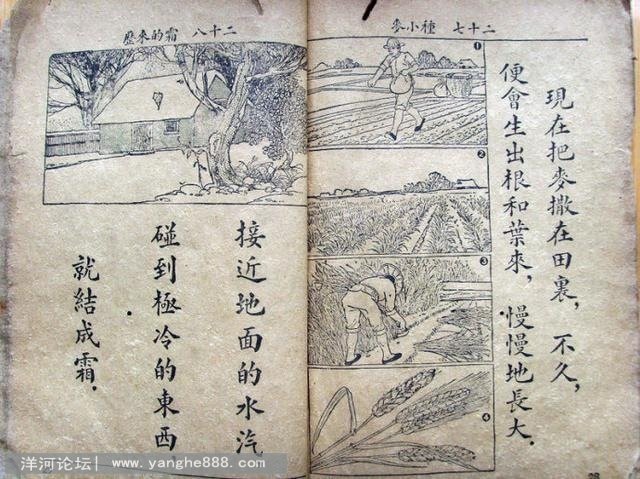 二十七 種小麥
現在把麥撒在田裏,不久,
便會生出根和葉來,慢慢地長大.
1
2
3
4
二十八 霜的來歷
接近地面的水汽
碰到極冷的東西
就結成霜.
洋河论坛| www.yanghe888.com